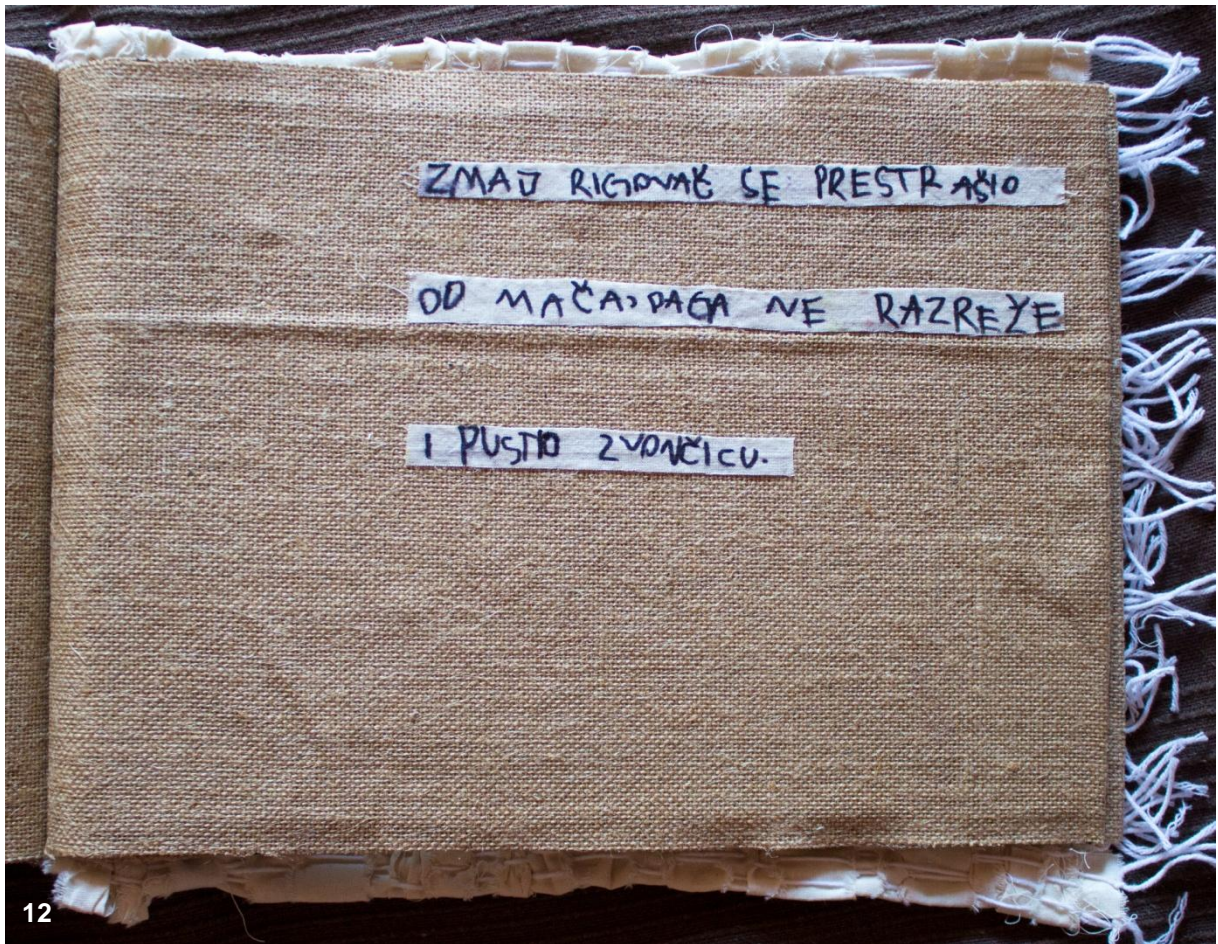 ZMAJ RIGOVAČ SE PRESTRAŠIO
OD MAČA, DAGA NE RAZREŽE
I PUSTIO ZVONČICU.
12